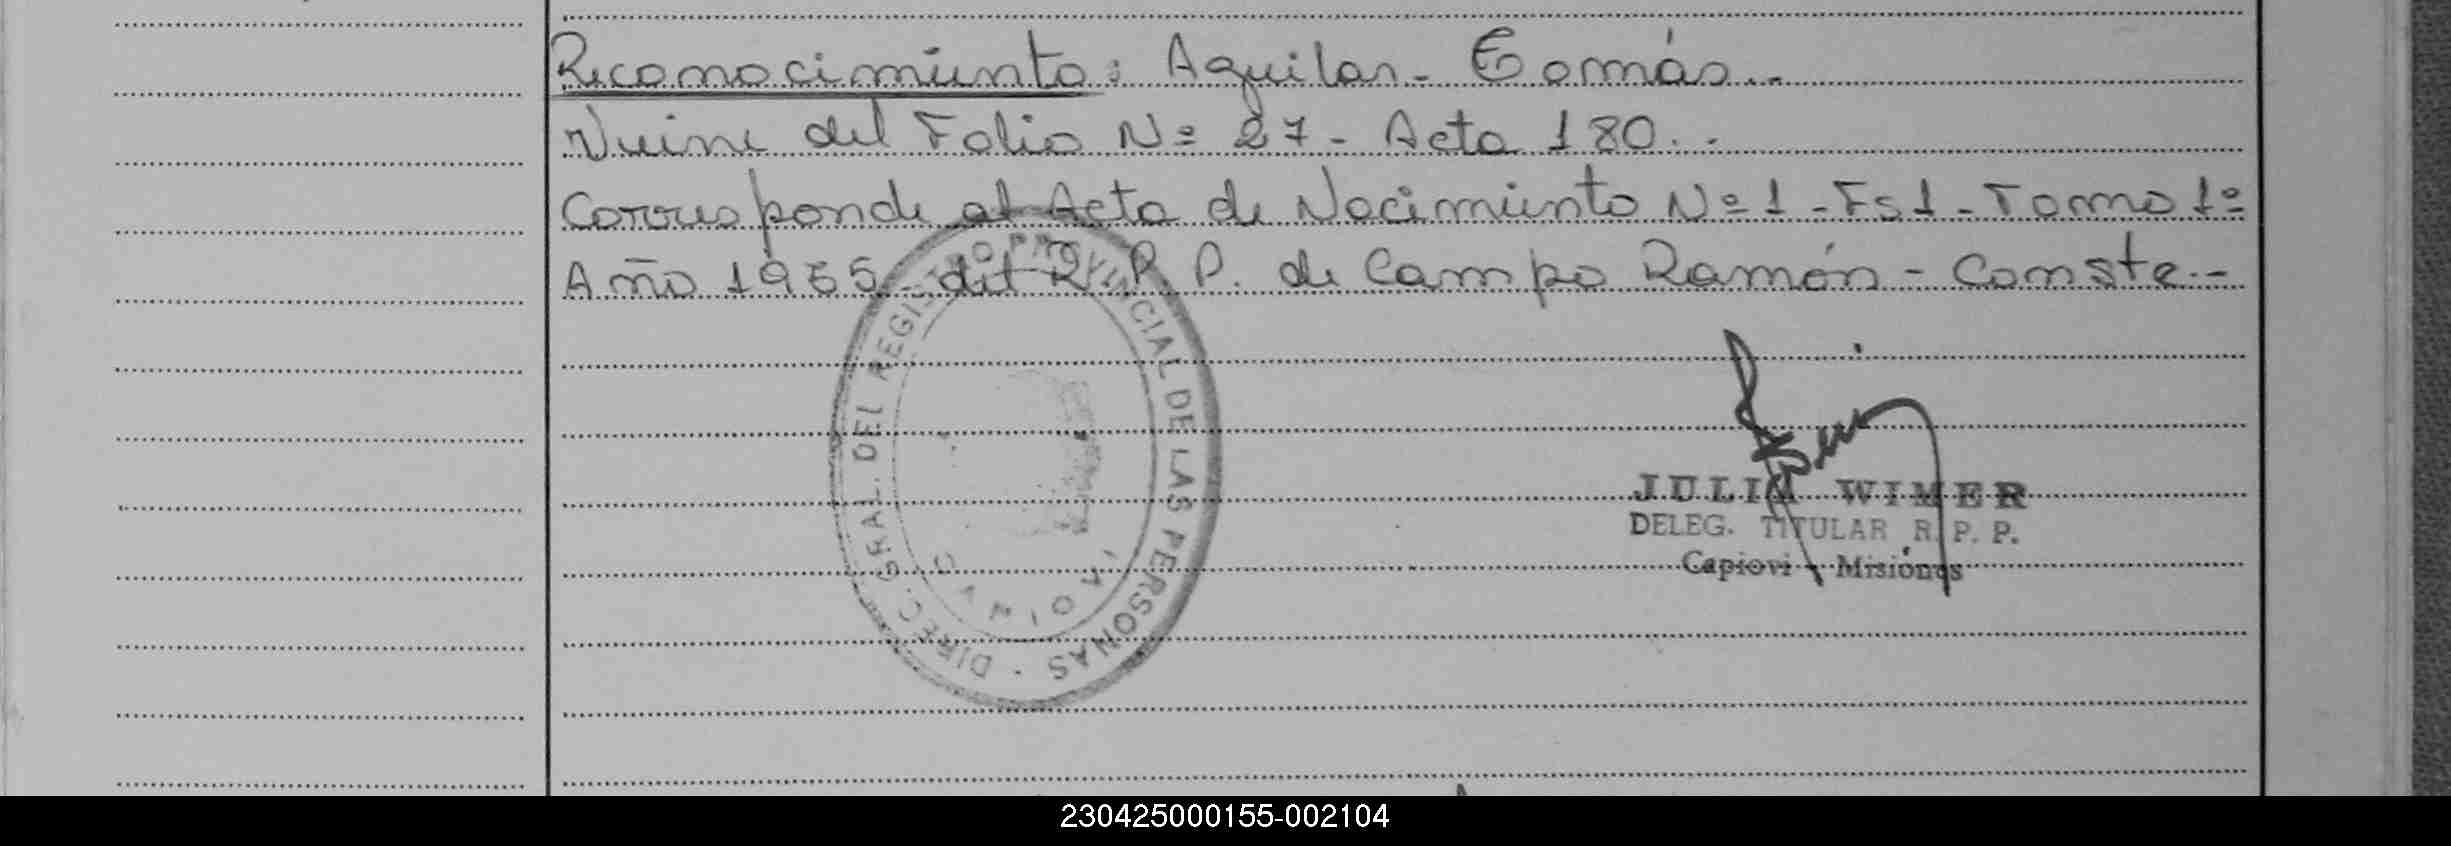 Reconocimiento: Aguilar - Tomás..
Viene del Folio Nº 27 - Acta 180..
Corresponde al Acta de Nacimiento Nº 1 - Fs 1 - Tomo 1º
Año 1955 - del R. P. P. de Campo Ramón - Conste.-
DIREC. GRAL. DEL REGISTRO PROVINCIAL DE LAS PERSONAS -
JULIA WIMER
DELEG. TITULAR R. P. P.
Capiovi - Misiones
230425000155-002104